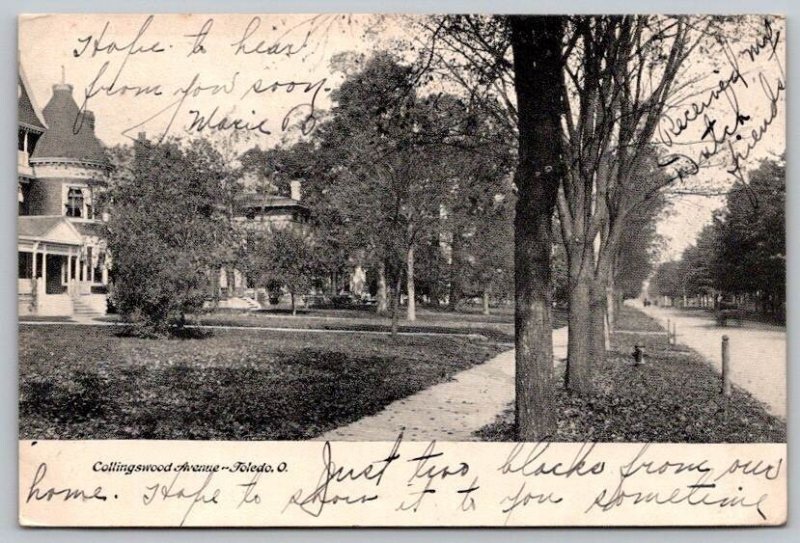 Hope to hear
from you soon
Marie B.
Received my
Dutch
friends
Collingswood Avenue--Toledo, O.
Just two blocks from our
home. Hope to show it to you sometime